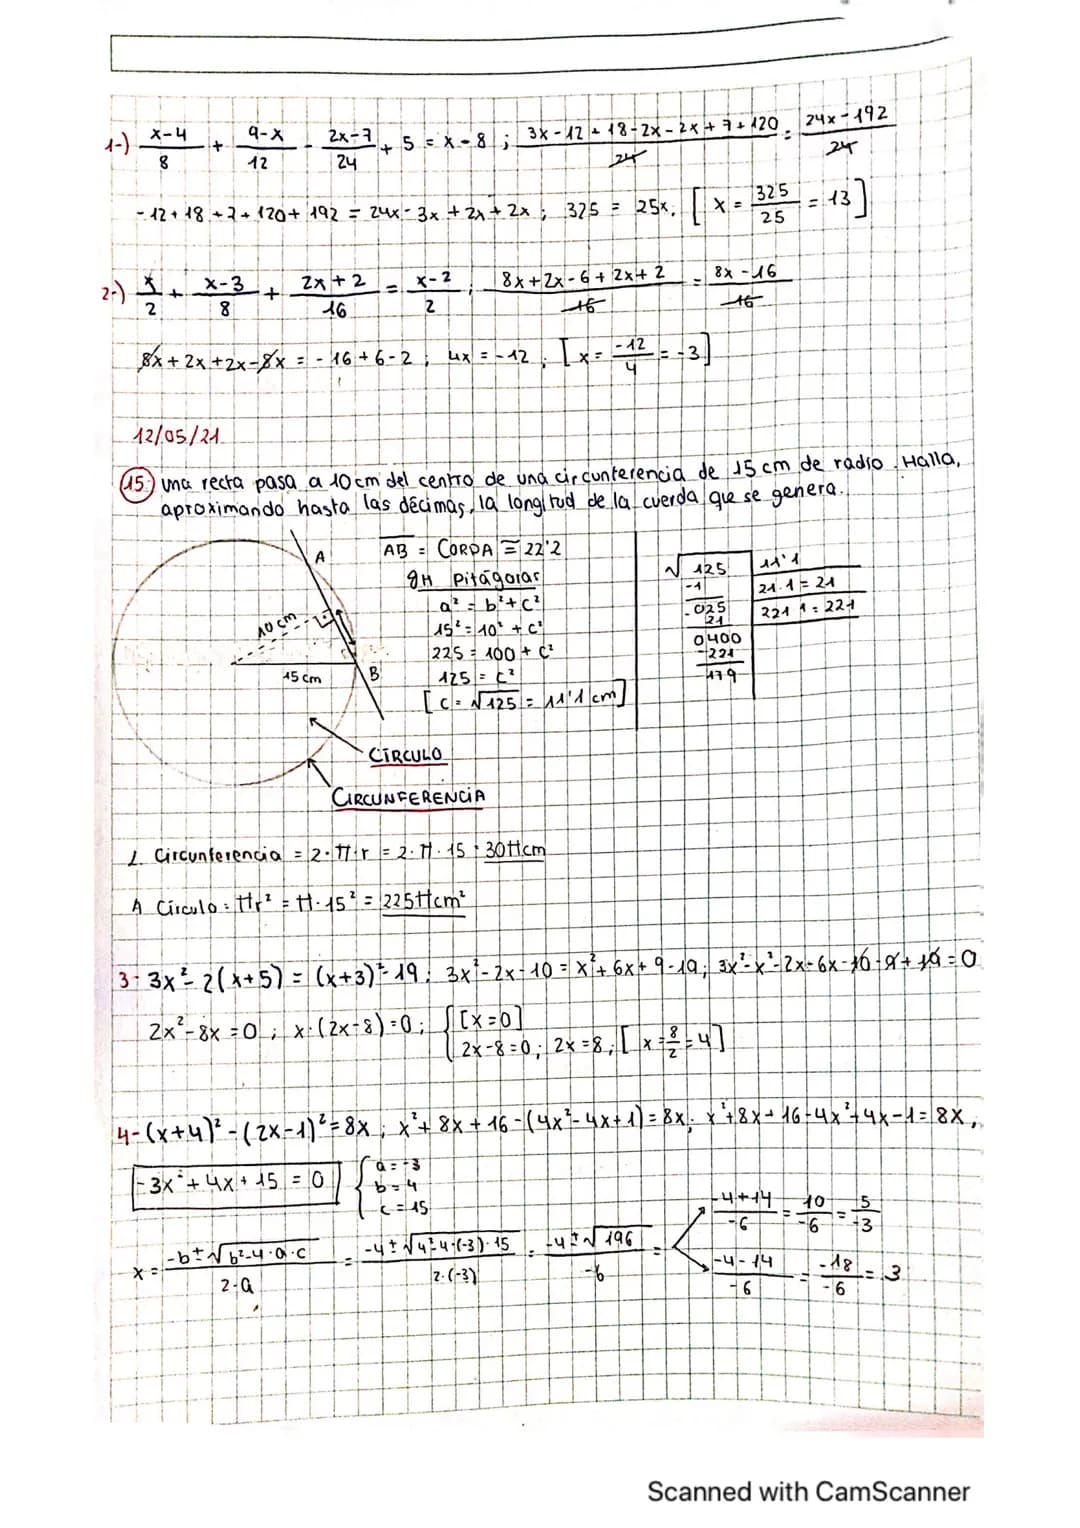 1-) x-4/8 + 9-x/12 - 2x-7/24 + 5 = x-8 ; 3x-12+18-2x-2x+7+120/24 = 24x-192/24
-12+18+7+120+192 = 24x-3x+2x+2x ; 325 = 25x ; [x = 325/25 = 13]
2-) x/2 + x-3/8 + 2x+2/16 = x-2/2 ; 8x+2x-6+2x+2/16 = 8x-16/16
8x+2x+2x-8x = -16+6-2 ; 4x = -12 ; [x = -12/4 = -3]
12/05/21
15 una recta pasa a 10 cm del centro de una circunferencia de 15 cm de radio. Halla,
aproximando hasta las décimas, la longitud de la cuerda que se genera.
A
10 cm
15 cm
B
CÍRCULO
CIRCUNFERENCIA
AB = CORDA ≅ 22'2
Pitágoras
a² = b²+c²
15² = 10² + c²
225 = 100 + c²
125 = c²
[c = √125 = 11'1 cm]
√125 11'1
-1 21·1 = 21
025 221·1 = 221
21
0400
-221
179
L Circunferencia = 2·π·r = 2·π·15 = 30πcm
A Círculo = πr² = π·15² = 225πcm²
3- 3x²-2(x+5) = (x+3)²-19 ; 3x²-2x-10 = x²+6x+9-19 ; 3x²-x²-2x-6x-10-9+19=0
2x²-8x=0 ; x·(2x-8)=0 ; { [x=0]
2x-8=0 ; 2x=8 ; [x=8/2=4]
4- (x+4)²-(2x-1)²=8x ; x²+8x+16-(4x²-4x+1)=8x ; x²+8x+16-4x²+4x-1=8x ;
-3x²+4x+15=0 { a=-3
b=4
c=15
x = -b±√b²-4·a·c/2·a = -4±√4²-4·(-3)·15/2·(-3) = -4±√196/-6 =
-4+14/-6 = 10/-6 = 5/-3
-4-14/-6 = -18/-6 = 3
Scanned with CamScanner